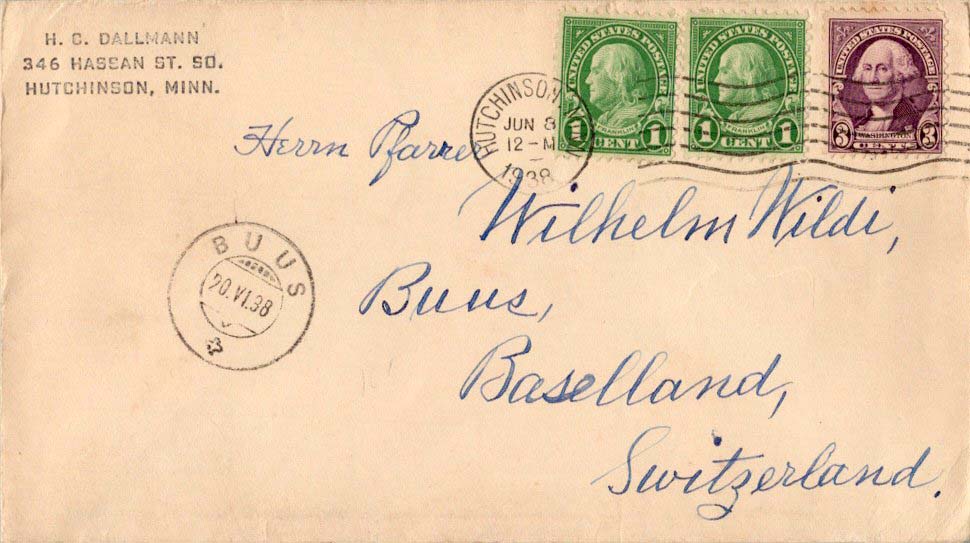 H. C. DALLMANN
346 HASSAN ST. SO.
HUTCHINSON, MINN.
UNITED STATES POSTAGE
FRANKLIN
1 CENT 1
UNITED STATES POSTAGE
FRANKLIN
1 CENT 1
UNITED STATES POSTAGE
WASHINGTON
3 CENTS 3
HUTCHINSON
JUN 8
12-M
1938
Herrn Pfarrer
Wilhelm Wildi,
Buus,
Baselland,
Switzerland.
BUUS
20.VI.38